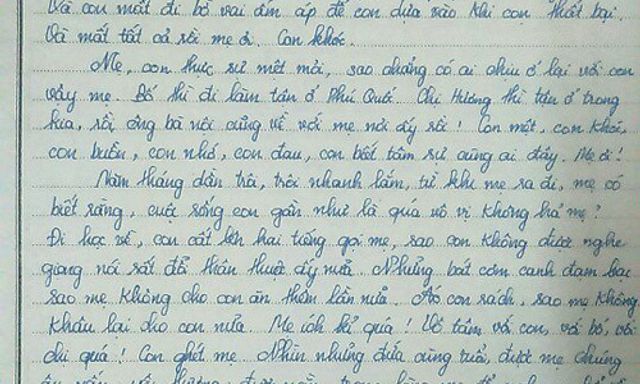 Và con mất đi bờ vai ấm áp để con dựa vào khi con thất bại.
Và mất tất cả rồi mẹ ơi. Con khóc.
Mẹ, con thực sự mệt mỏi, sao chẳng có ai chịu ở lại với con
vậy mẹ. Bố thì đi làm tận ở Phú Quốc. Chị Hương thì tận ở trong
kia, rồi ông bà nội cũng về với mẹ nơi ấy rồi! Con mệt, con khóc,
con buồn, con nhớ, con đau, con biết tâm sự cùng ai đây. Mẹ ơi!
Năm tháng dần trôi, trôi nhanh lắm, từ khi mẹ ra đi, mẹ có
biết rằng, cuộc sống con gần như là quá vô vị không hả mẹ?
Đi học về, con cất lên hai tiếng gọi mẹ, sao con không được nghe
giọng nói sất đỗi thân thuộc ấy nữa. Những bát cơm canh đạm bạc
sao mẹ không cho con ăn thêm lần nữa. Áo con rách, sao mẹ không
khâu lại cho con nữa. Mẹ ích kỉ quá! Vô tâm với con, với bố, với
chị quá! Con ghét mẹ. Nhìn những đứa cùng tuổi, được mẹ chúng